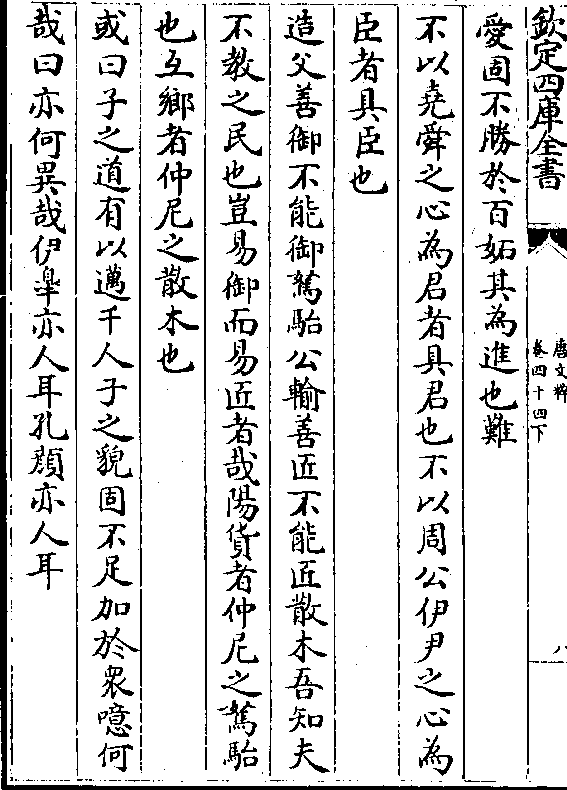 欽定四庫全書
唐文粹
卷四十四下
八
愛固不勝於百妬其為進也難
不以堯舜之心為君者具君也不以周公伊尹之心為
臣者具臣也
造父善御不能御駑駘公輸善匠不能匠散木吾知夫
不教之民也豈易御而易匠者哉陽貨者仲尼之駑駘
也互鄉者仲尼之散木也
或曰子之道有以邁千人子之貌固不足加於衆噫何
哉曰亦何異哉伊臯亦人耳孔顏亦人耳